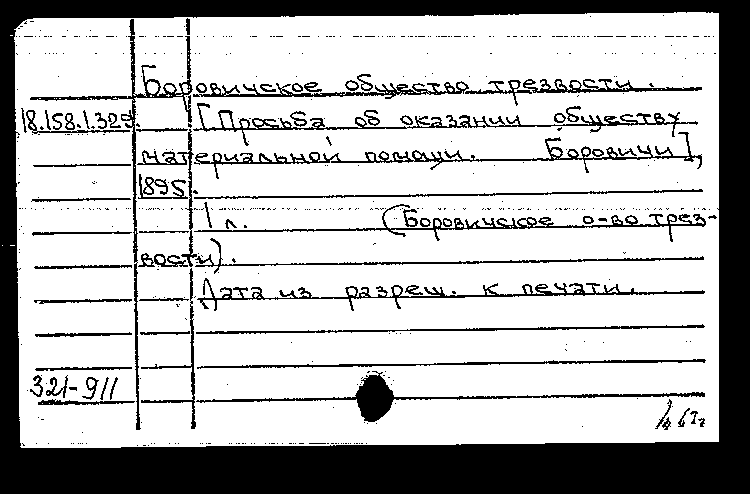 Боровичское общество трезвости.
18.158.1.325. [Просьба об оказании обществу
материальной помощи. Боровичи],
1895.
1 л. (Боровичское о-во трез-
вости).
Дата из разреш. к печати.
321-911